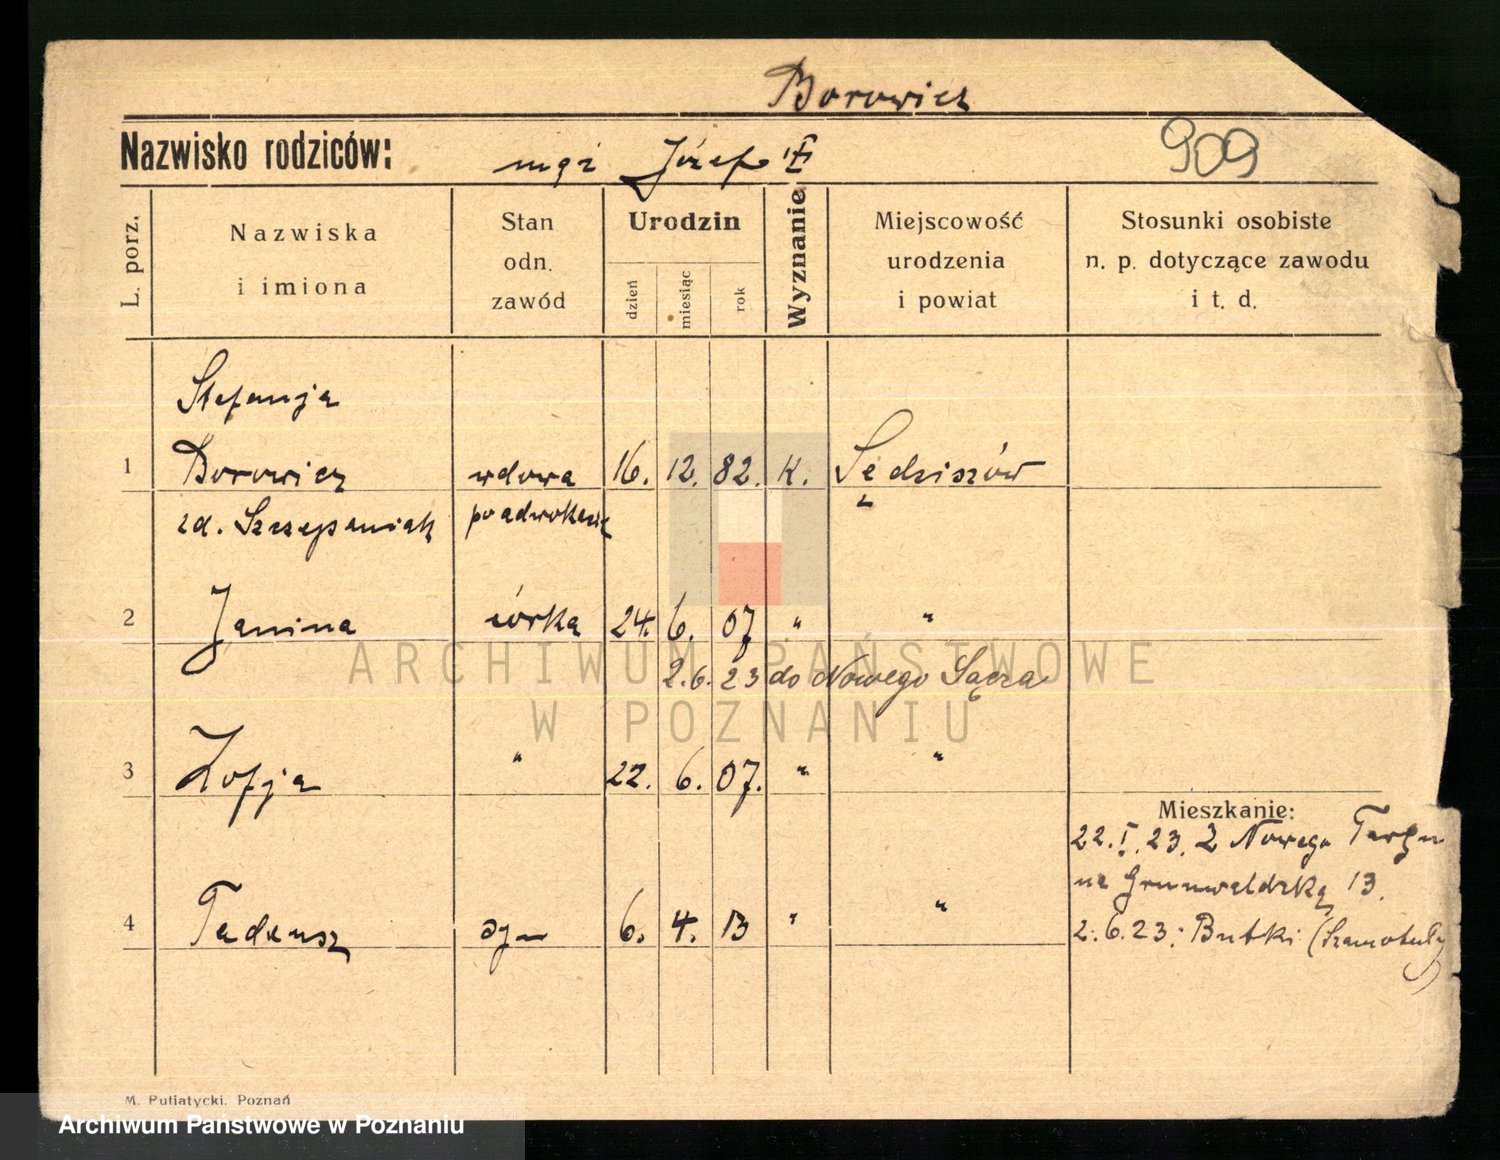 Borowicz
Nazwisko rodziców:
mąż Józef
909
L. porz.
Nazwiska
i imiona
Stan
odn.
zawód
Urodzin
dzień
miesiąc
rok
Wyznanie
Miejscowość
urodzenia
i powiat
Stosunki osobiste
n. p. dotyczące zawodu
i t. d.
Stefanja
1 Borowicz wdowa 16. 12. 82. K. Sędziszów
zd. Szczepaniak po adwokacie
2 Janina córka 24. 6. 07 " "
2. 6. 23 do Nowego Sącza
3 Zofja " 22. 6. 07. " "
Mieszkanie:
22. I. 23. Z Nowego Targu
na Grunwaldzką 13.
4 Tadeusz syn 6. 4. 13 " "
2. 6. 23: Butki (Szamotuły)
ARCHIWUM PAŃSTWOWE
W POZNANIU
M. Putiatycki. Poznań
Archiwum Państwowe w Poznaniu